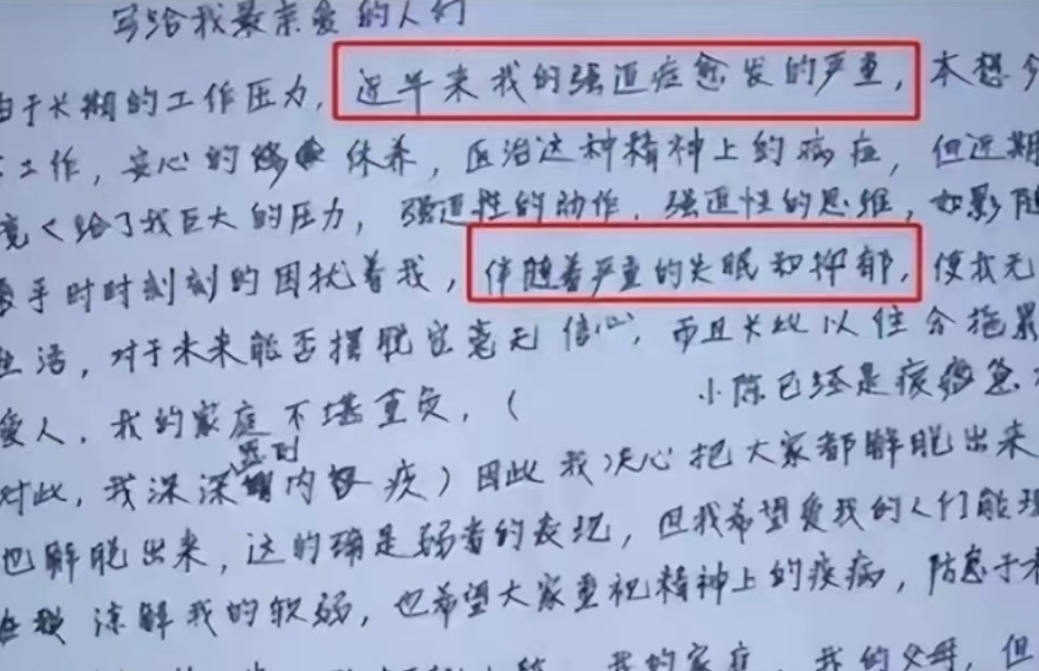 写给我最亲爱的人们
由于长期的工作压力，近年来我的强迫症愈发的严重，本想今
工作，安心的休养，医治这种精神上的病症，但近期
境给了我巨大的压力，强迫性的动作，强迫性的思维，如影随
乎时时刻刻的困扰着我，伴随着严重的失眠和抑郁，使我无
生活，对于未来能否摆脱它毫无信心，而且长此以往会拖累
爱人，我的家庭不堪重负，（小陈已经是疲惫
对此，我深深感到内疚）因此我决心把大家都解脱出来
也解脱出来，这的确是弱者的表现，但我希望爱我的人们能
谅解我的软弱，也希望大家重视精神上的疾病，防患于未
我的家庭，我的父母，但